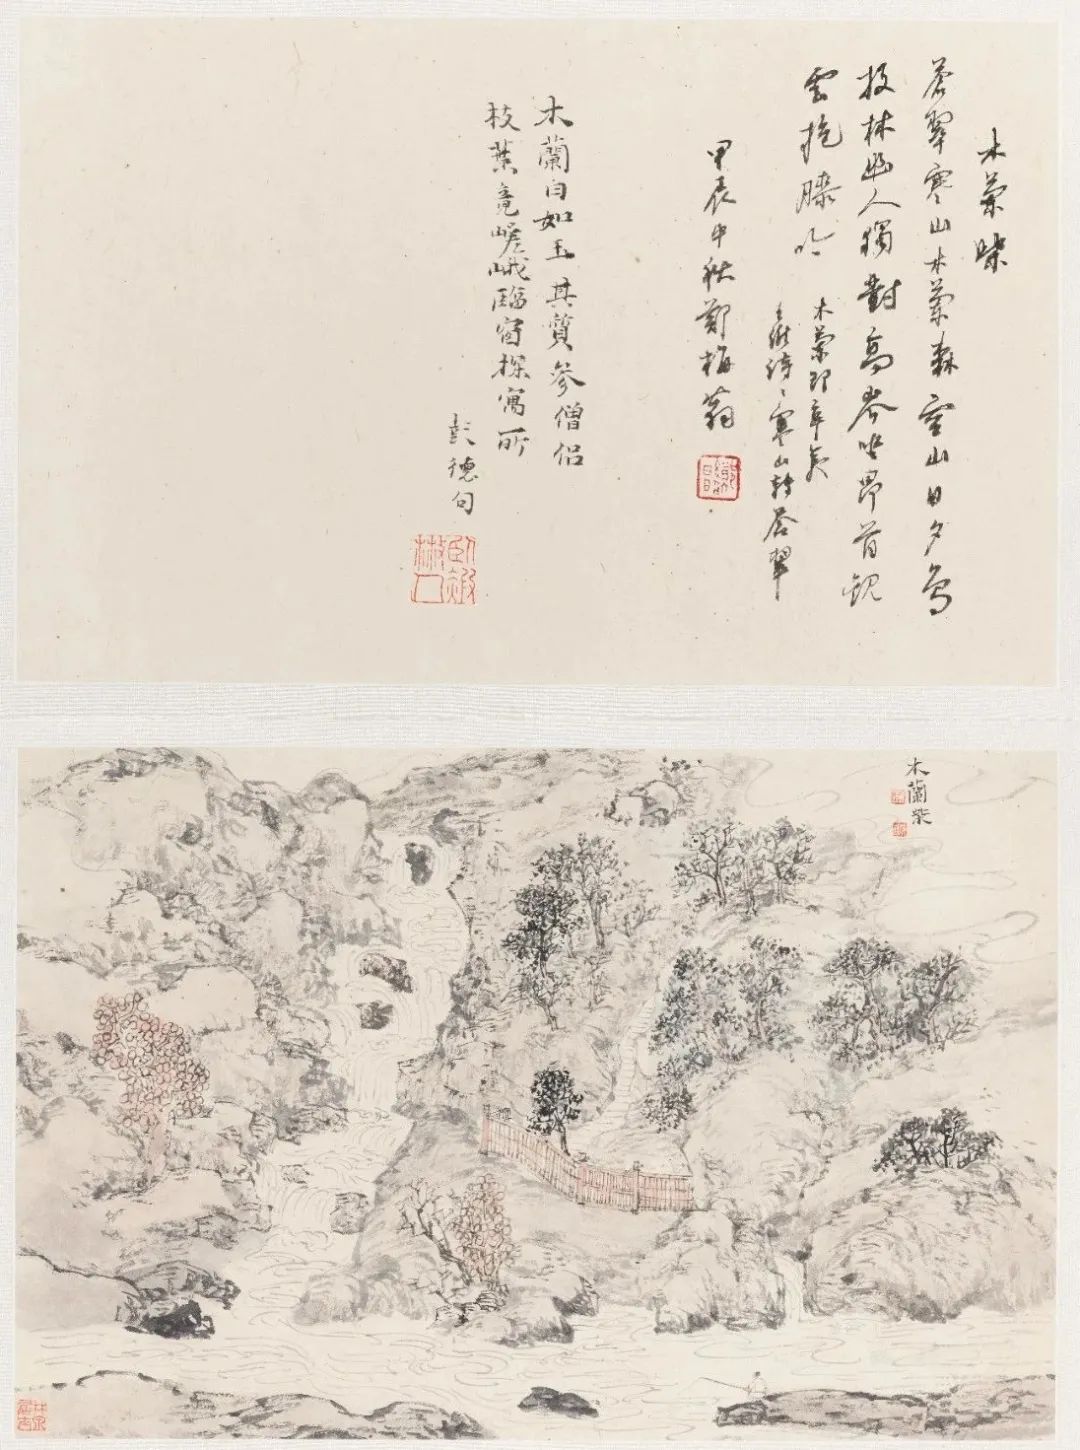 木蘭柴
蒼翠寒山木蘭森空山日夕鳥
投林幽人獨對高岑坐昂首觀
雲抱膝吟
木蘭即辛夷
王維詩：寒山轉蒼翠
甲辰中秋鄭梅翁
木蘭白如玉其質參僧侶
枝葉竟嵯峨臨窗探寓所
彭德句
木蘭柴